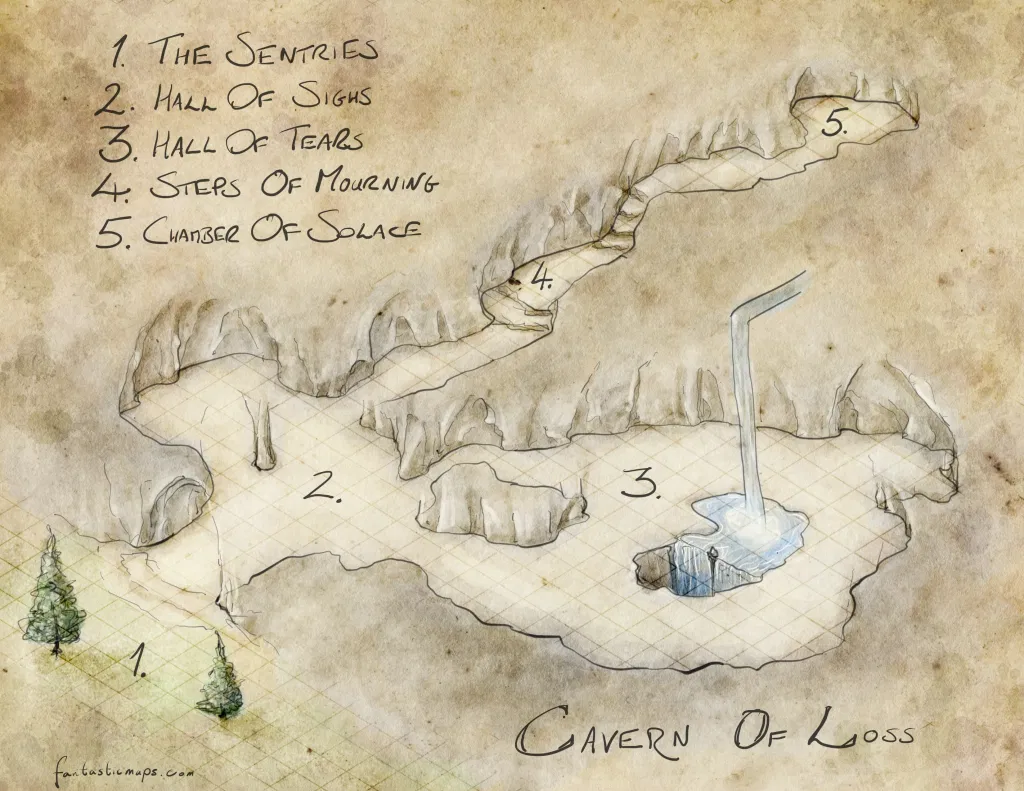 1. The Sentries
2. Hall Of Sighs
3. Hall Of Tears
4. Steps Of Mourning
5. Chamber Of Solace
5.
4.
2.
3.
1.
Cavern Of Loss
fantasticmaps.com